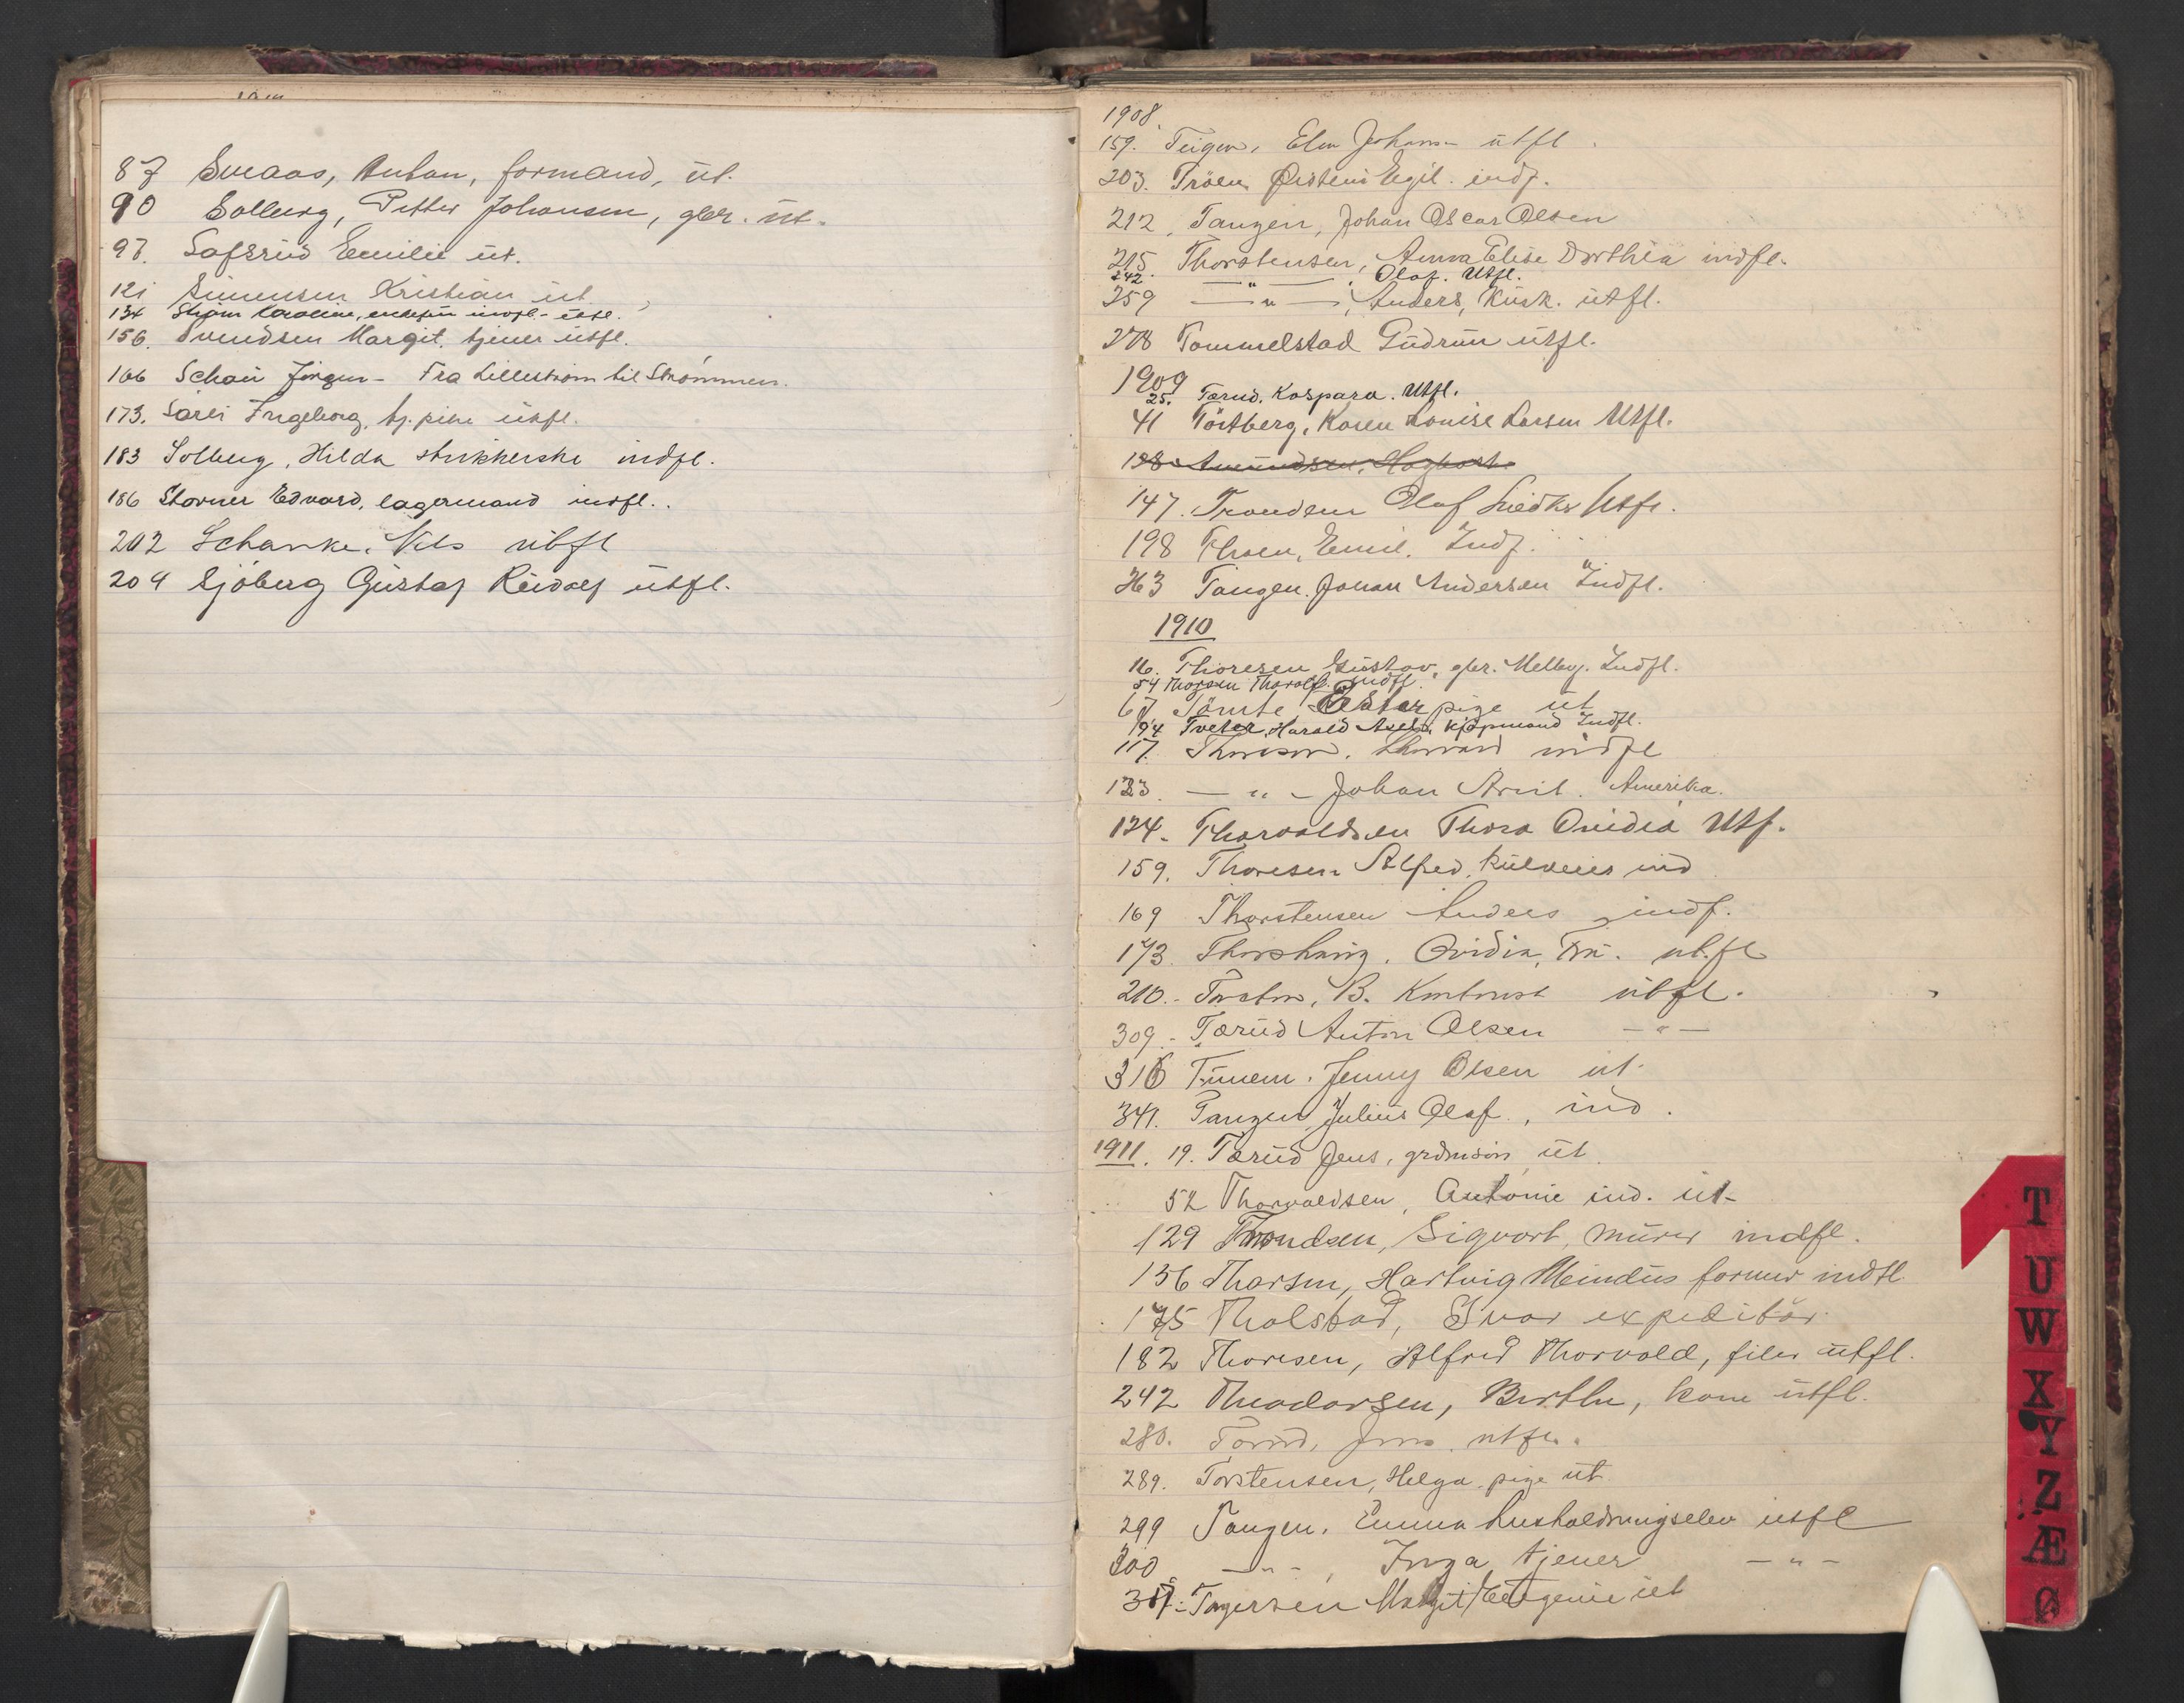 87 Sveaas, Anton, formand, üt.
90 Solberg, Petter Johansen, gbr. üt.
97. Lafsrüd Emilie üt.
121 Simensen Kristian üt
134 Strøm Karoline, enkefrü indfl. - ütfl.
156. Svendsen Margit. tjener ütfl.
166 Schau Jörgen - Fra Lillestrøm til Strømmen.
173. Sørli Ingeborg, tj. pike ütfl.
183 Solberg, Hilda strikkerske indfl.
186 Storner Edvard, lagermand indfl..
202 Schanke, Nils ütfl
204 Sjöberg Güstaf Rüdolf ütfl.
1908.
159. Teigen, Elen Johans- ütfl.
203. Tröen Øistein Egil. indf.
212, Tangen, Johan Oscar Olsen
215. Thorstensen, Anna Elise Dorthea indfl.
242 — " — , Olaf. Utfl.
259 — " — , Anders, Küsk. ütfl.
278 Tommelstad Güdrün ütfl.
1909
25. Tærud, Kaspara. Utfl.
41 Töitberg, Karen Louise Larsen Utfl.
128 Amündsen, Hagbart
147. Trondsen Olaf Utfl.
198 Thoen, Emil. Indf.
263 Tangen. Johan Andersen Indfl.
1910
16. Thoresen Güstav, gbr. Melby. Indfl.
54 Thorsen Thorolf. Indfl.
67 Tömte Ester pige üt
94 Tveter, Harald Axel, kjøpmand Indfl.
117. Thoresen. indfl
123. — " — Johan Arvid. Amerika.
124. Thorvaldsen Thora Ovidia Utf.
159. Thoresen Alfred. Külveies ind
169 Thorstensen Anders indf.
173. Thorshaüg. Ovidia, Frü. üt.fl
210. - B. Kontorist ütfl.
309. - Tærüd Anton Olsen — " —
316 Jenny Olsen üt.
341. Tangen Juliüs Olaf., ind.
1911. 19. Tærüd Jens, grdmsön üt.
52 Thorvaldsen, Antonie ind. üt-
129 Trondsen, Sigvart, mürer indfl.
136 Thorsen, Hartvig Meindüs former indfl.
175 Tholstad, Ivar expeditör.
182 Thoresen, Alfred Thorvald, filer ütfl.
242 Theodorsen, Berthe, kone ütfl.
280. Tærüd, Jens. ütfl.
289. Torstensen, Helga. pige üt
299 Tangen. Emma husholdningselev ütfl
300 — " — , Inga, tjener — " —
317. Torgersen Margit Eugenie üt
T
U
W
X
Y
Z
Æ
Ø